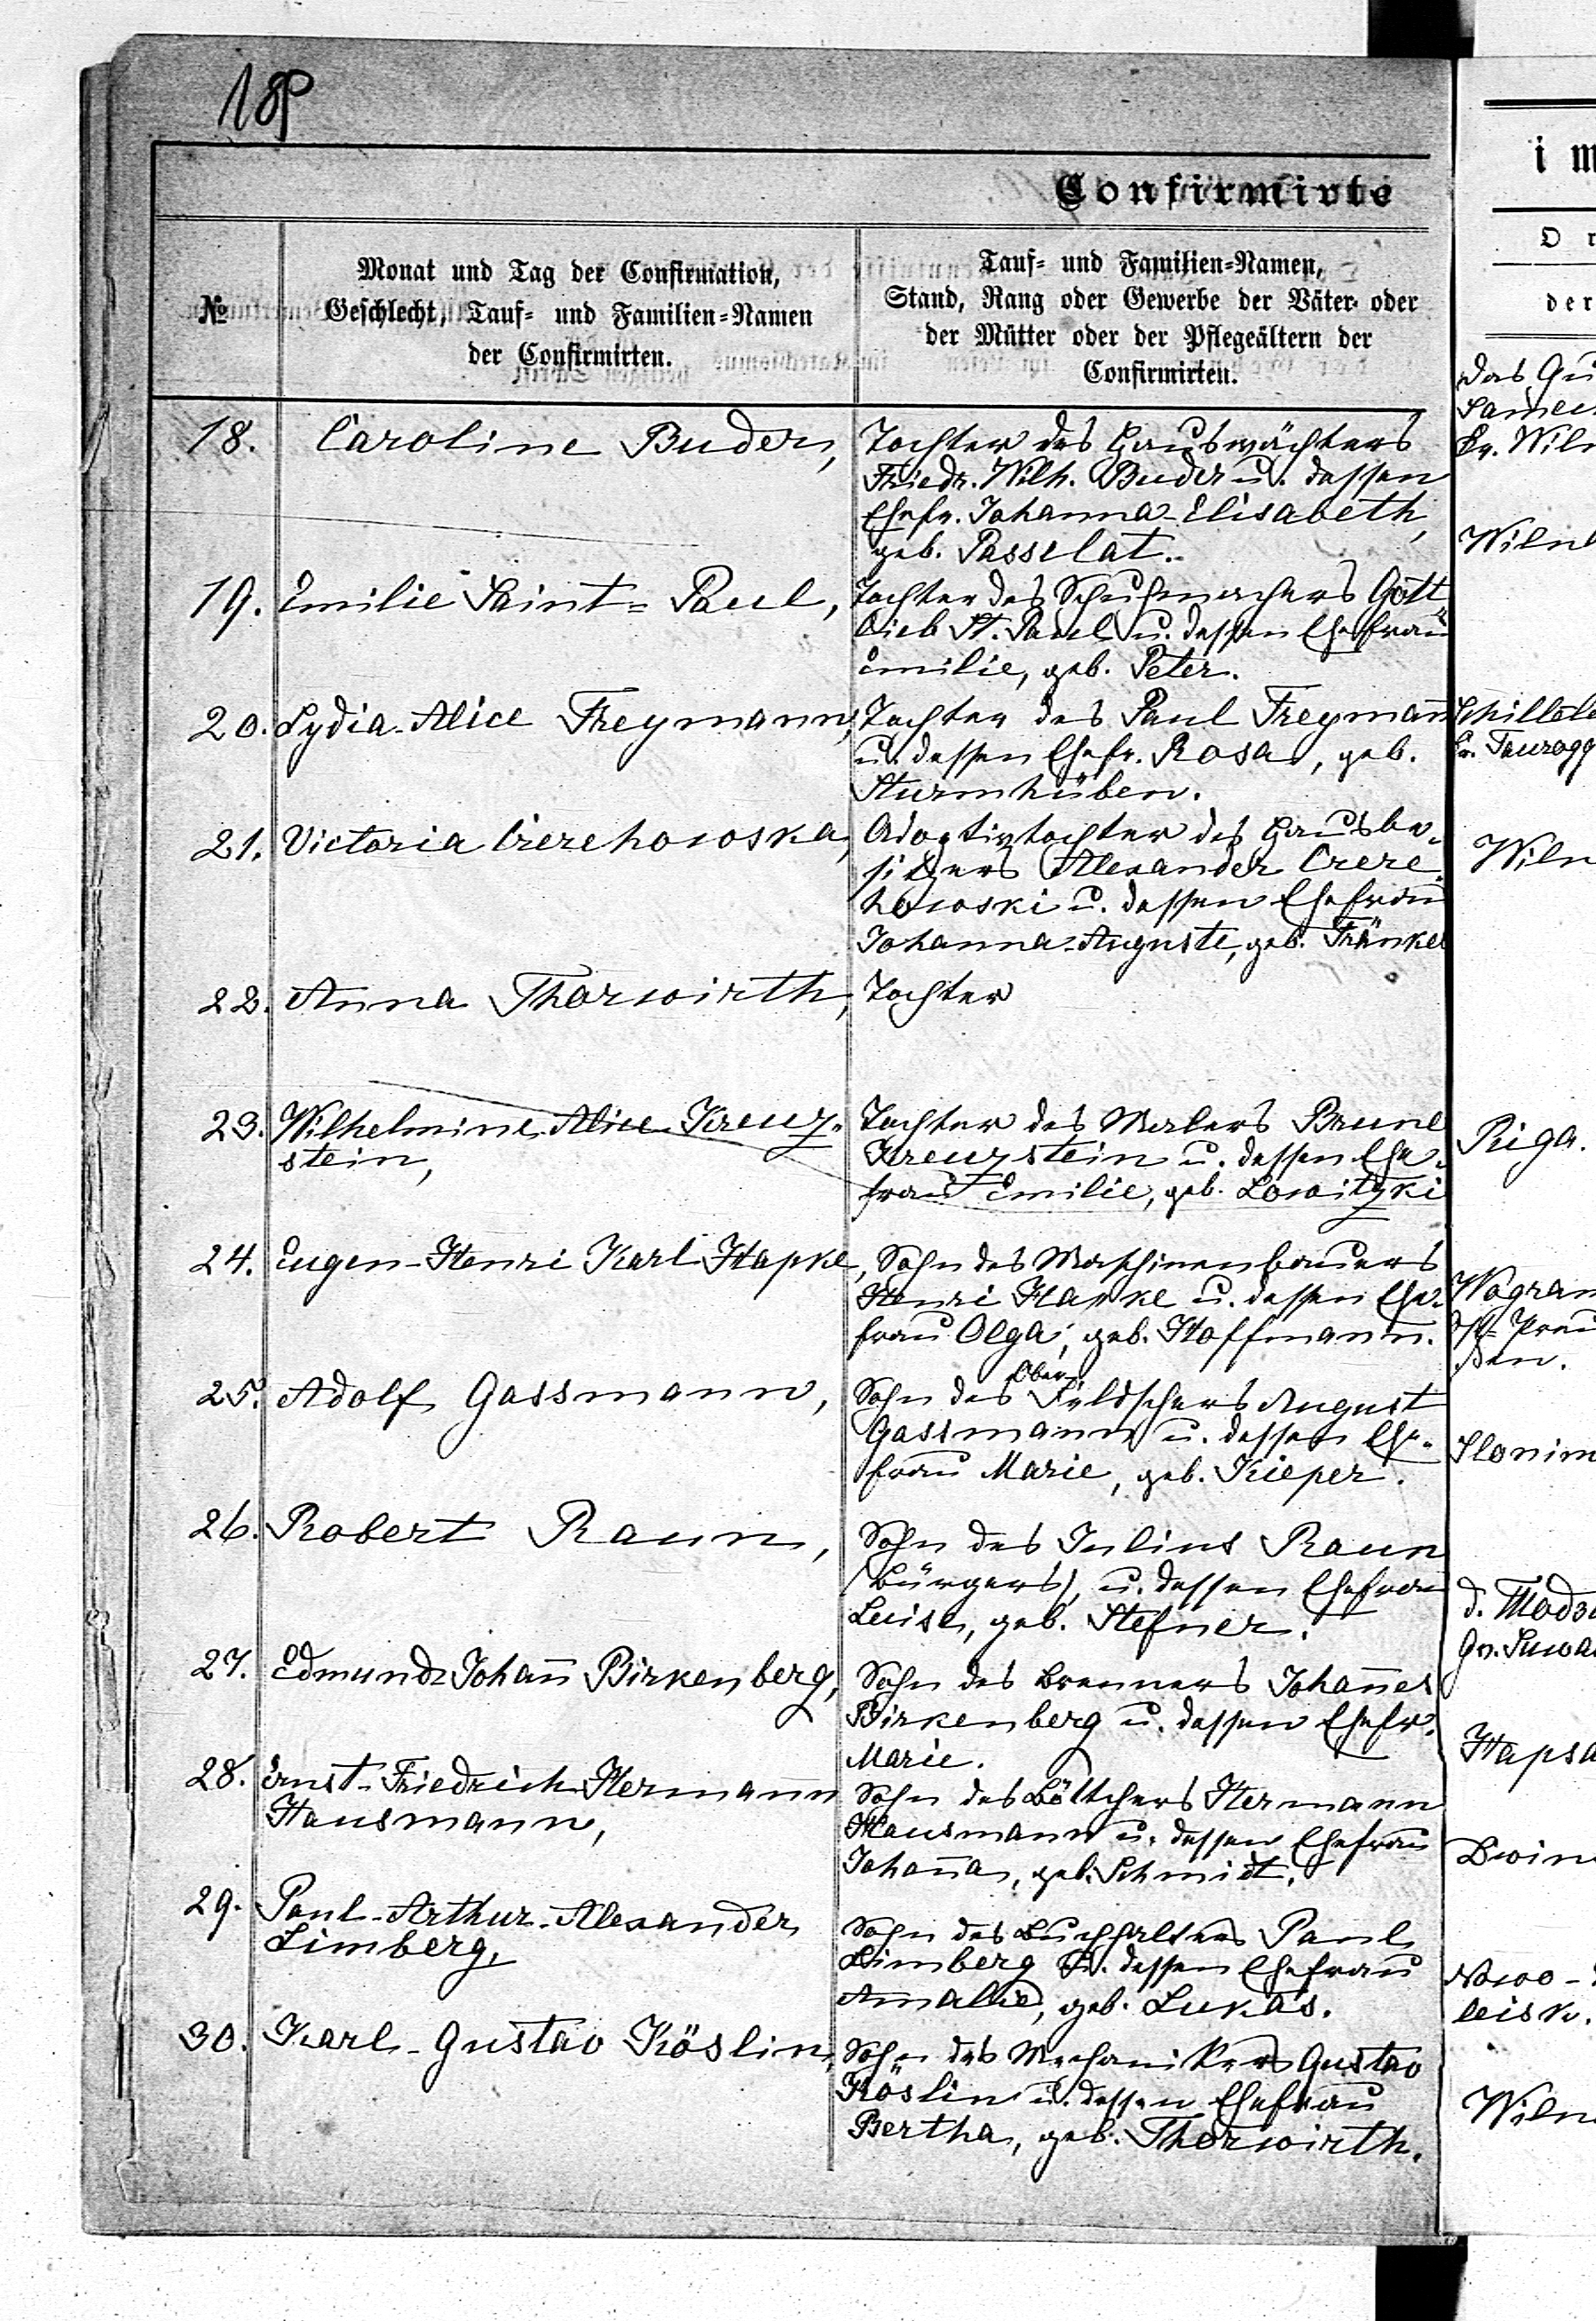 189
Confirmirte
№
Monat und Tag der Confirmation,
Geschlecht, Tauf- und Familien-Namen
der Confirmirten.
Tauf- und Familien-Namen,
Stand, Rang oder Gewerbe der Väter oder
der Mütter oder der Pflegeältern der
Confirmirten.
18. Caroline Buder,
Tochter des Hauswächters
Friedr. Wilh. Buder u. dessen
Ehefr. Johanna-Elisabeth,
geb. Passelat.
19. Emilie Saint-Paul,
Tochter des Schuhmachers Gott
lieb St. Paul u. dessen Ehefrau
Emilie, geb. Peter.
20. Lydia-Alice Freymann,
Tochter des Paul Freymann
u. dessen Ehefr. Rosa, geb.
Sturmhüben.
21. Victoria Czerehowska,
Adoptivtochter des Hausbe-
sitzers Alexander Czere-
howski u. dessen Ehefrau
Johanna-Auguste, geb. Fränkel
22. Anna Thorwirth,
Tochter
23. Wilhelmine Alice Kreuz-
stein,
Tochter des Malers Bruno
Kreuzstein u. dessen Ehe-
frau Emilie, geb. Lowitzki
24. Eugen-Henri Karl Hapke,
Sohn des Maschinenbauers
Henri Hapke u. dessen Ehe-
frau Olga, geb. Hoffmann.
25. Adolf Gassmann,
Sohn des Ober Feldschers August
Gassmann u. dessen Ehe-
frau Marie, geb. Kieper.
26. Robert Raun,
Sohn des Julius Raun
(Bürgers), u. dessen Ehefrau
Luise, geb. Stefner.
27. Edmund Johann Birkenberg,
Sohn des Brenners Johannes
Birkenberg u. dessen Ehefr.
Marie.
28. Ernst-Friedrich-Hermann
Hausmann,
Sohn des Böttchers Hermann
Hausmann u. dessen Ehefrau
Johanna, geb. Schmidt.
29. Paul-Arthur-Alexander
Limberg,
Sohn des Buchhalters Paul
Limberg u. dessen Ehefrau
Amalie, geb. Lukas.
30. Karl-Gustav Köslin,
Sohn des Mechanikers Gustav
Köslin u. dessen Ehefrau
Bertha, geb. Thorwirth.
im
O r
der
das Gu
Kr. Wiln
Wiln
Kr. Taurogg
Wiln
Riga.
Wogram
Preu
ßen.
Slonim
Gv. Suwa
Hapsa
Dwin
Nowo-
leisk.
Wiln